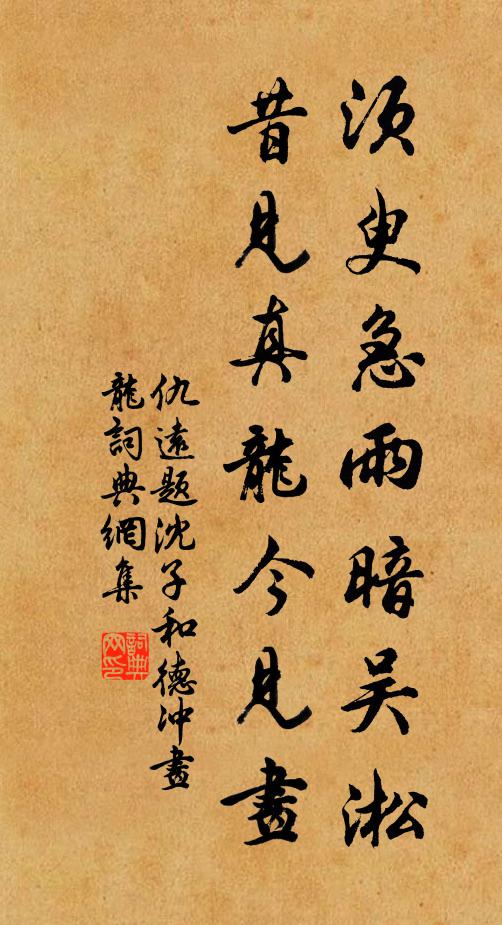 須臾急雨暗吴淞
昔見真龍今見畫
仇遠題沈子和德冲畫
龍詞典網集
詞典网印